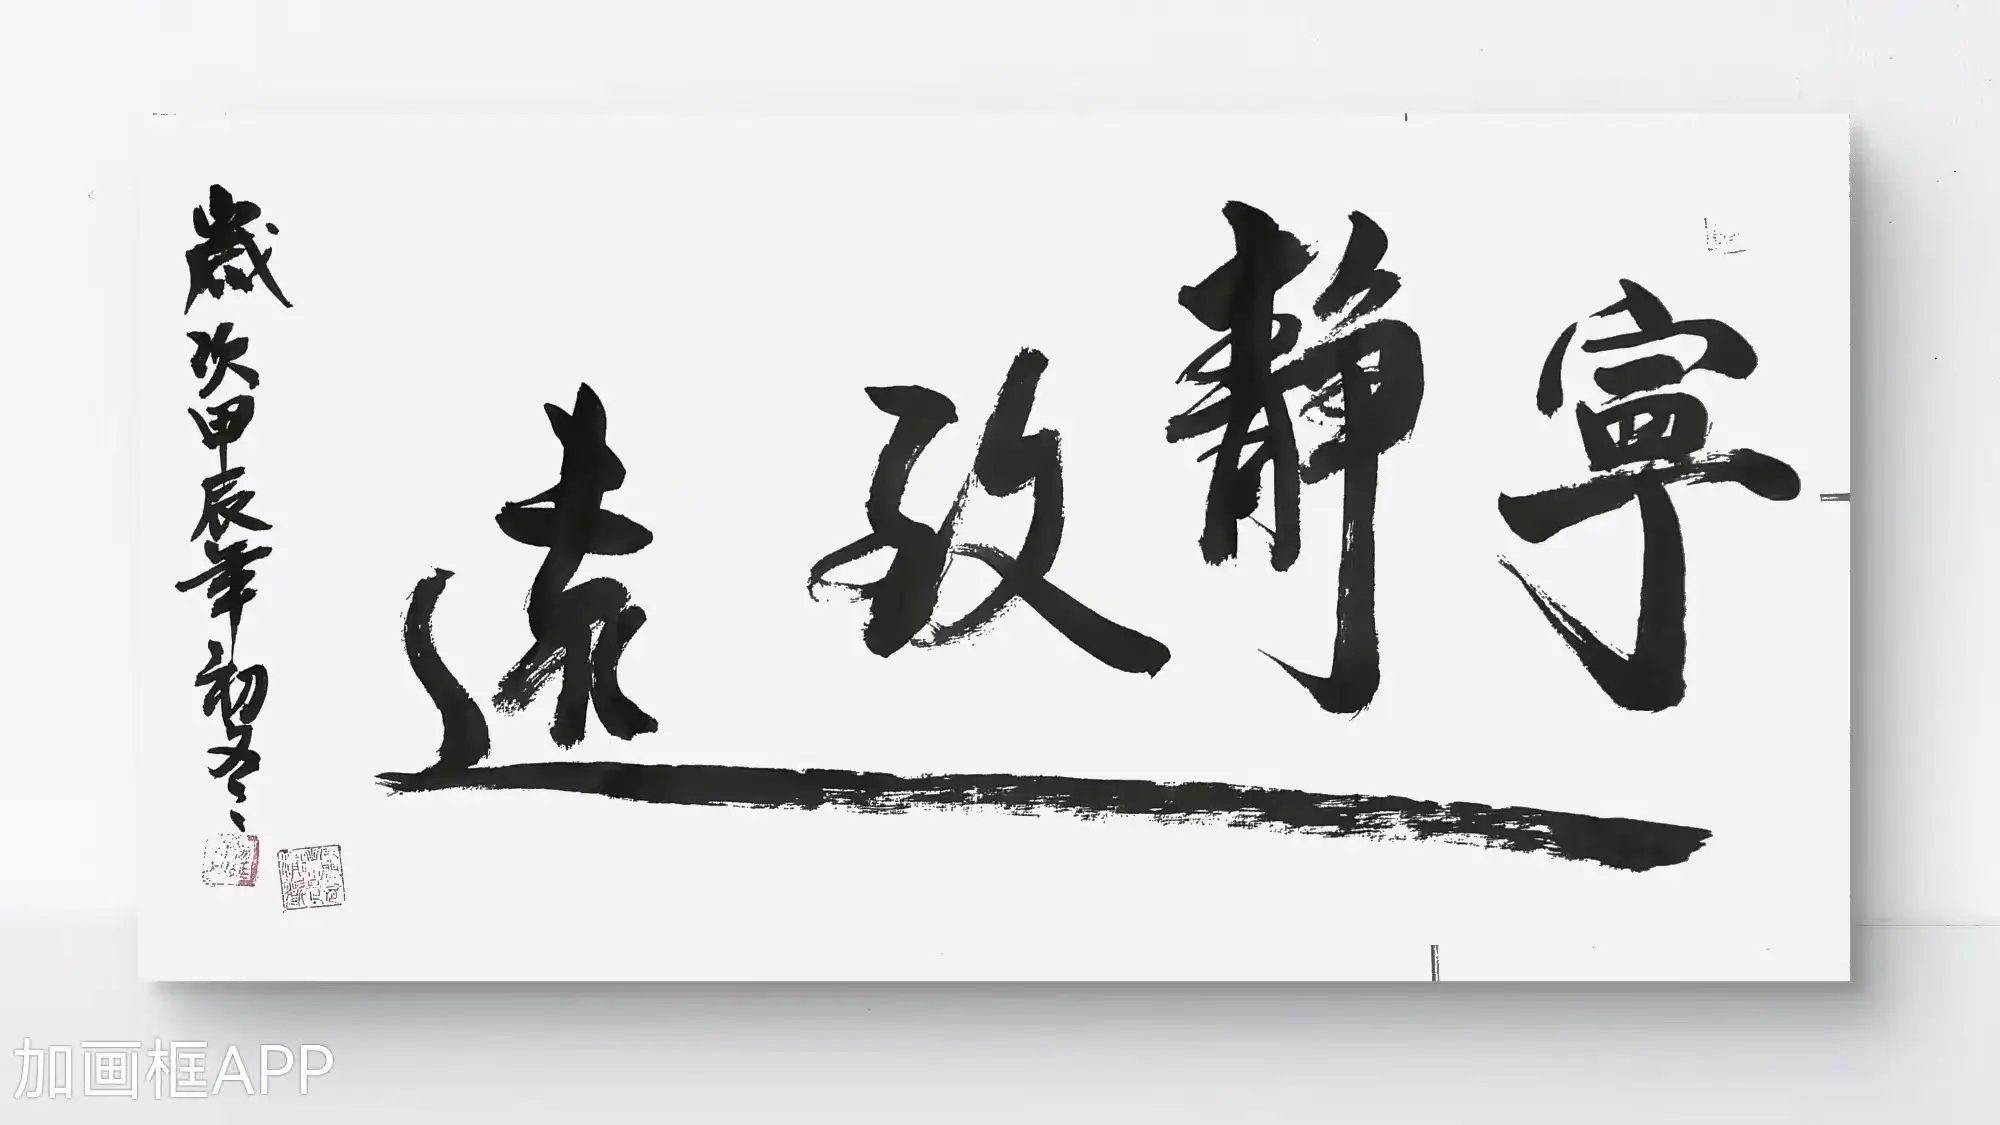 寧靜致遠
歲次甲辰年初冬
加画框APP